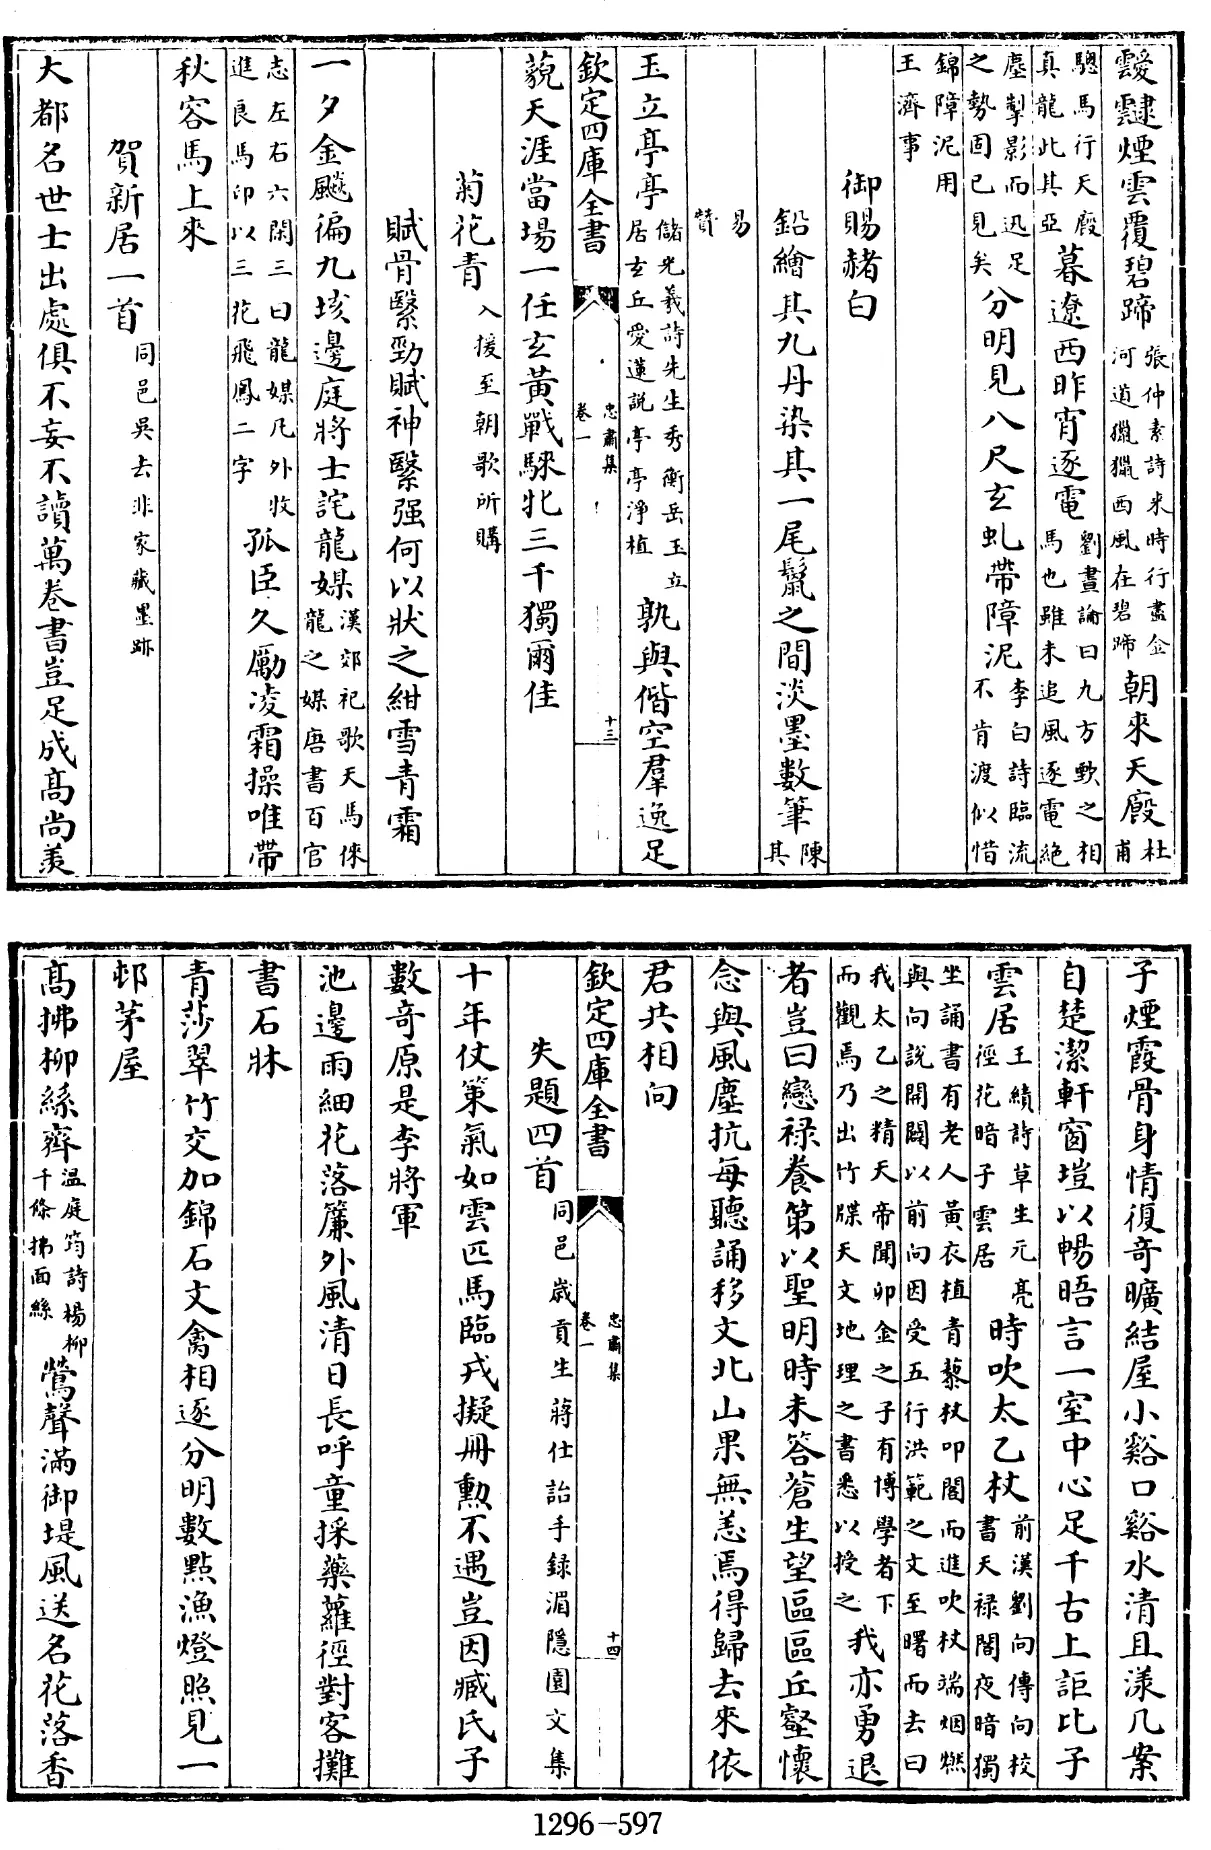 靉靆煙雲覆碧蹄張仲素詩來時行盡金河道獵獵西風在碧蹄朝來天廄杜甫
驄馬行天廄真龍此其亞暮遼西昨宵逐電劉晝論曰九方歅之相馬也雖未追風逐電絶
塵掣影而迅足之勢固已見矣分明見八尺玄虬帶障泥李白詩臨流不肯渡似惜
錦障泥用王濟事
御賜赭白
鉛繪其九丹染其一尾鬛之間淡墨數筆陳其
易贊
玉立亭亭儲光羲詩先生秀衡岳玉立居玄丘愛蓮説亭亭淨植孰與偕空羣逸足
欽定四庫全書 忠肅集 卷一 十三
藐天涯當場一任玄黃戰騋牝三千獨爾佳
菊花青入援至朝歌所購
賦骨繄勁賦神繄强何以狀之紺雪青霜
一夕金飈徧九垓邊庭將士詫龍媒漢郊祀歌天馬倈龍之媒唐書百官
志左右六閑三曰龍媒凡外收進良馬印以三花飛鳳二字孤臣久勵凌霜操唯帶
秋容馬上來
賀新居一首同邑吳去非家藏墨跡
大都名世士出處俱不妄不讀萬卷書豈足成髙尚羨
子煙霞骨身情復奇曠結屋小谿口谿水清且漾几案
自楚潔軒窗塏以暢晤言一室中心足千古上詎比子
雲居王績詩草生元亮徑花暗子雲居時吹太乙杖前漢劉向傳向校書天禄閣夜暗獨
坐誦書有老人黃衣植青藜杖叩閣而進吹杖端烟燃與向説開闢以前向因受五行洪範之文至曙而去曰
我太乙之精天帝聞卯金之子有博學者下而觀焉乃出竹牒天文地理之書悉以授之我亦勇退
者豈曰戀禄養第以聖明時未答蒼生望區區丘壑懷
念與風塵抗每聽誦移文北山果無恙焉得歸去來依
君共相向
欽定四庫全書 忠肅集 卷一 十四
失題四首同邑嵗貢生蔣仕詒手録湄隱園文集
十年仗策氣如雲匹馬臨戎擬冊勲不遇豈因臧氏子
數奇原是李將軍
池邊雨細花落簾外風清日長呼童採藥蘿徑對客攤
書石牀
青莎翠竹交加錦石文禽相逐分明數點漁燈照見一
邨茅屋
髙拂柳絲齊温庭筠詩楊柳千條拂面絲鶯聲滿御堤風送名花落香
1296-597